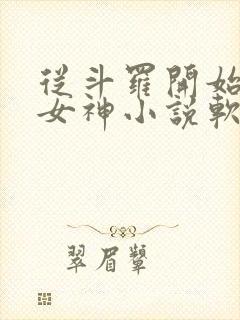 從斗羅開始
女神小說軟
翠眉顰